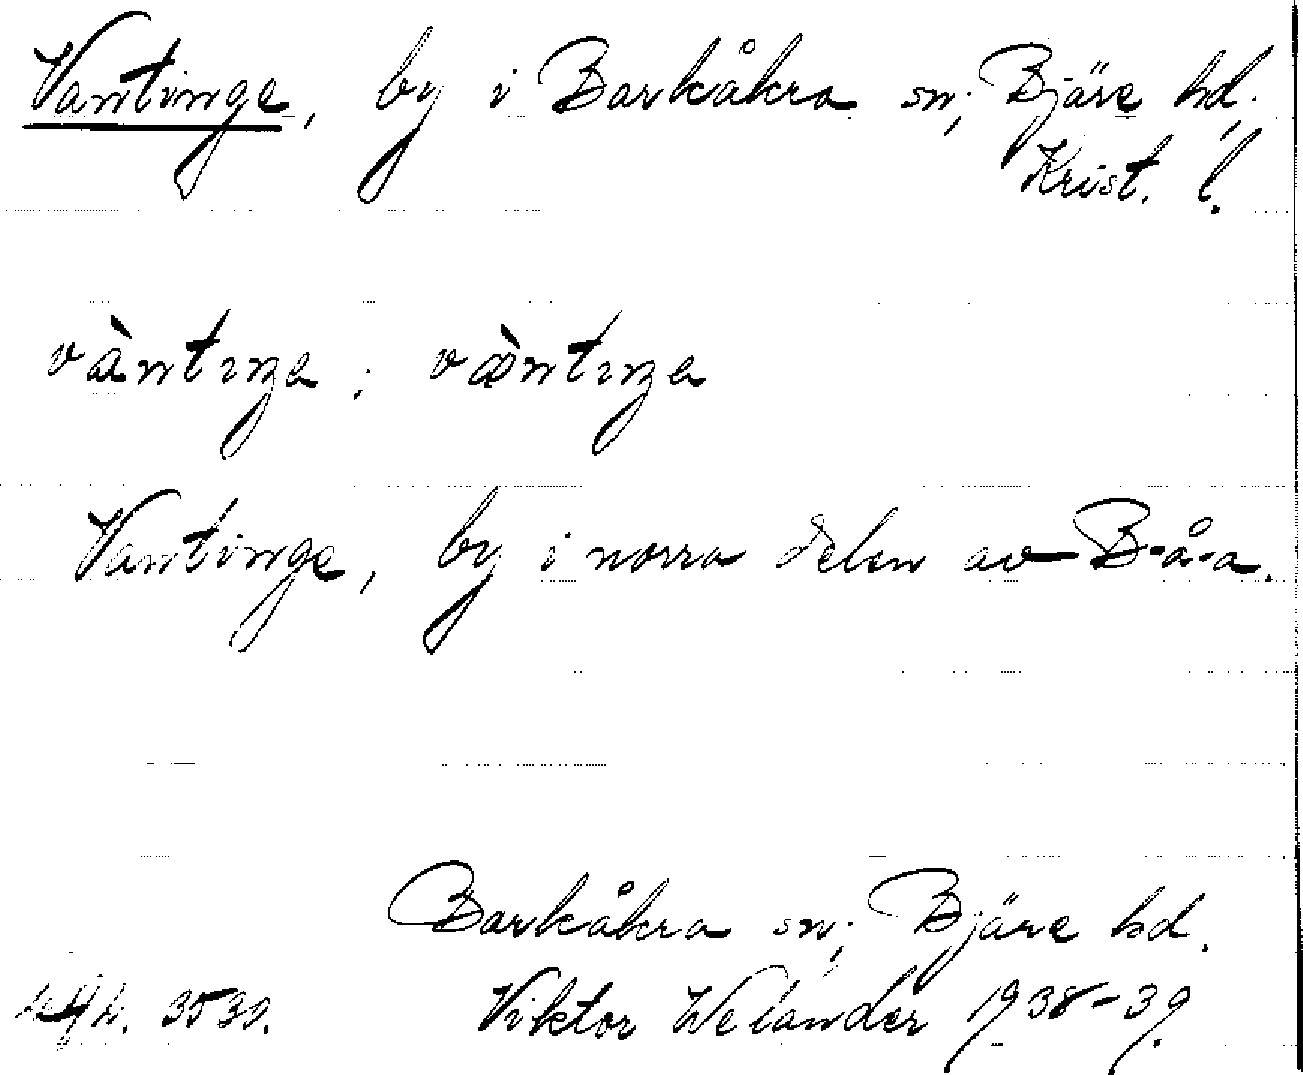 Vantinge, by i Barkåkra sn; Bjäre hd,
Krist. l.
vàntıŋa ; væ̀ntıŋa
Vantinge, by i norra delen av B-å-a.
Barkåkra sn; Bjäre hd.
3530. Viktor Welander 1938-39